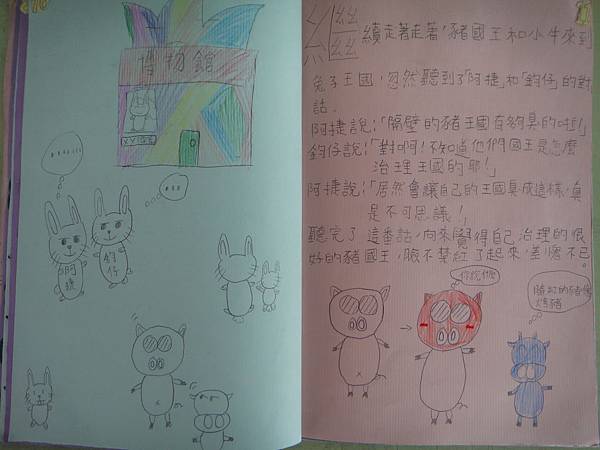 博物館
阿捷
鈞仔
繼續走著走著,豬國王和小牛來到
兔子王國,忽然聽到了「阿捷」和「鈞仔」的對
話。
阿捷說:「隔壁的豬王國有夠臭的啦!」
鈞仔說:「對啊!不知道他們國王是怎麼
治理王國的耶!」
阿捷說:「居然會讓自己的王國臭成這樣,真
是不可思議!」
聽完了這番話,向來覺得自己治理的很
好的豬國王,臉不禁紅了起來,羞愧不已。
你說啥
臉紅的豬像
烤豬